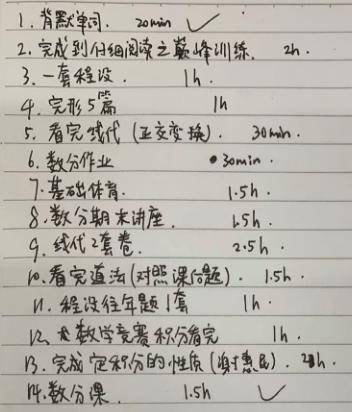 1. 背默单词. 20min ✓
2. 完成到仔细阅读之巅峰训练. 2h.
3. 一套程设. 1h.
4. 完形5篇 1h
5. 看完线代 (正交变换). 30min.
6. 数分作业 30min.
7. 基础体育. 1.5h.
8. 数分期末讲座. 1.5h.
9. 线代2套卷. 2.5h.
10. 看完道法(对照课后题). 1.5h.
11. 程设往年题1套 1h.
12. 数学竞赛积分看完 1h.
13. 完成定积分的性质 . h.
14. 数分课. 1.5h ✓